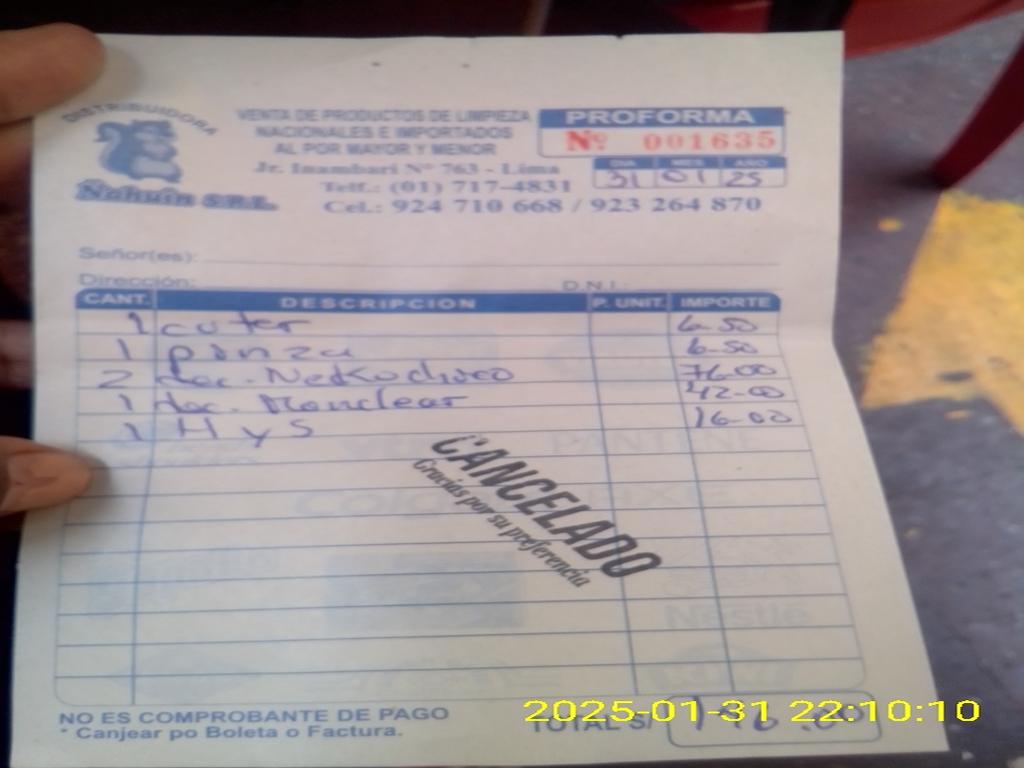 DISTRIBUIDORA
Nahuin S.R.L.
VENTA DE PRODUCTOS DE LIMPIEZA
NACIONALES E IMPORTADOS
AL POR MAYOR Y MENOR
Jr. Inambari N° 763 - Lima
Telf.: (01) 717-4831
Cel.: 924 710 668 / 923 264 870
PROFORMA
Nº 001635
DIA MES AÑO
31 01 25
Señor(es):
Dirección: D.N.I.:
CANT. DESCRIPCION P. UNIT. IMPORTE
1 cuter 6-50
1 pinza 6-50
2 76-00
1 42-00
1 H y S 16-00
CANCELADO
Gracias por su preferencia
PANTENE
Nestlé
NO ES COMPROBANTE DE PAGO
* Canjear po Boleta o Factura.
TOTAL S/
2025-01-31 22:10:10